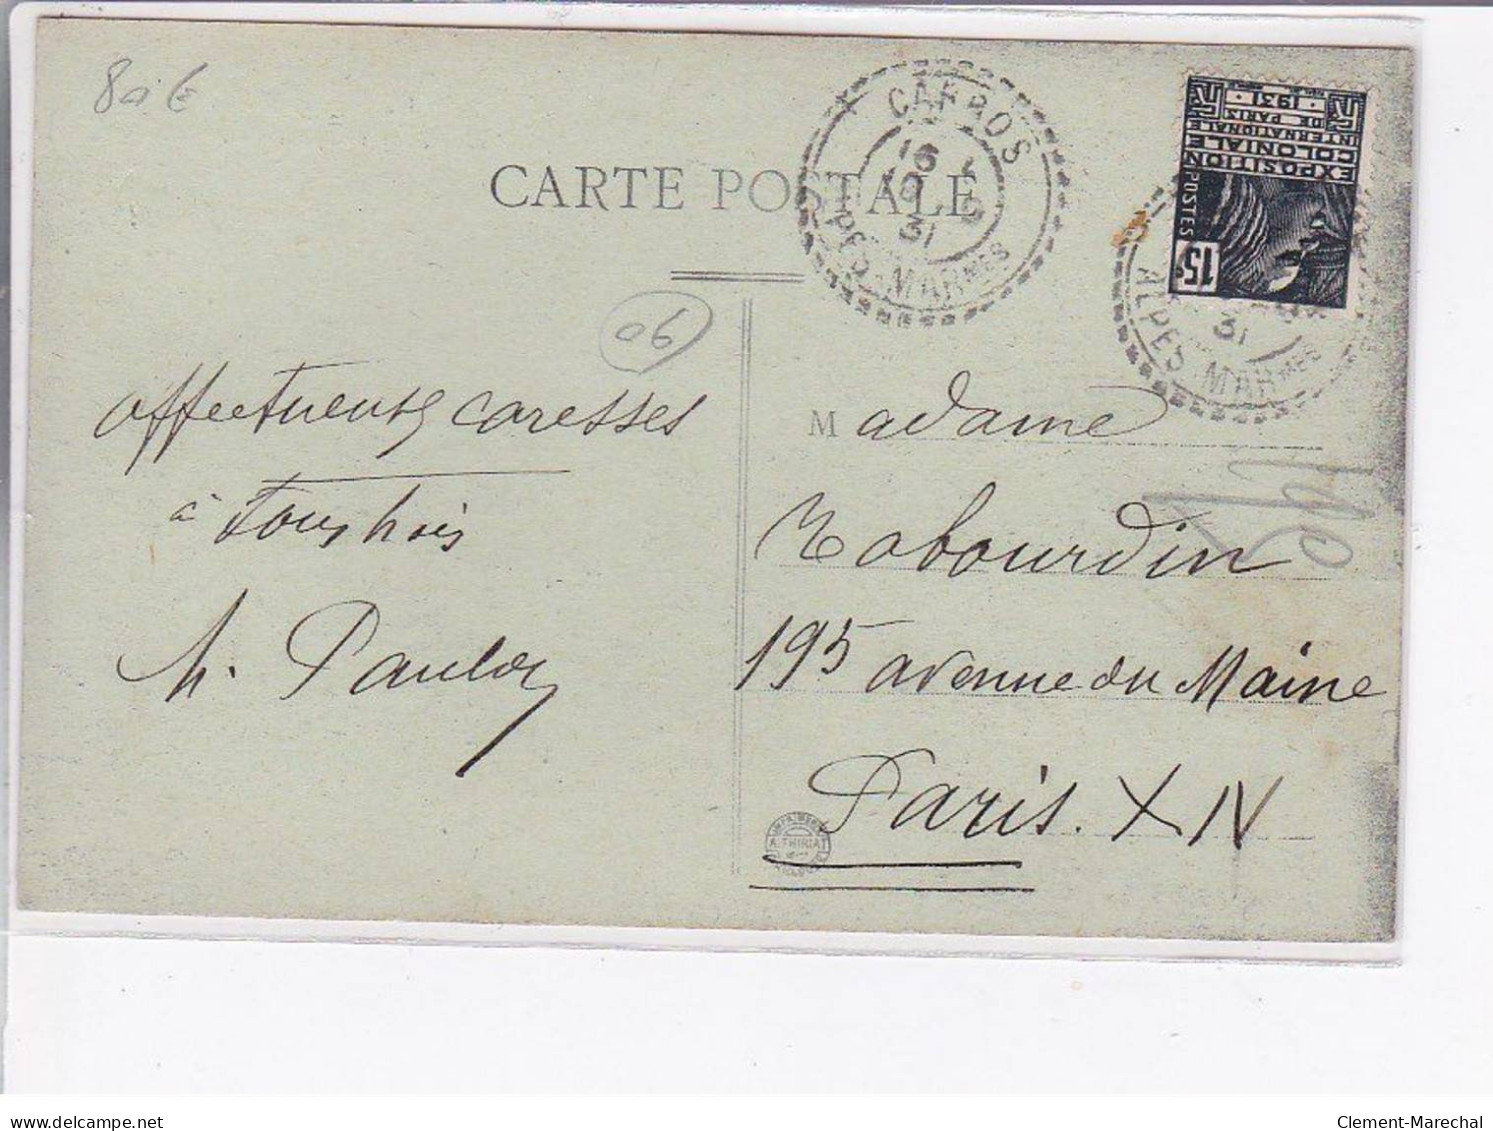 80 €
CARTE POSTALE
CARROS
16
10
31
ALPES-MARMES
EXPOSITION
COLONIALE
INTERNATIONALE
DE PARIS
· 1931 ·
POSTES
15
31
ALPES-MARMES
06
affectueuses caresses
à tous trois
h. Pauloy
Madame
Tabourdin
195 avenue du Maine
Paris. XIV
A. THIRIAT
delcampe.net
Clement-Marechal